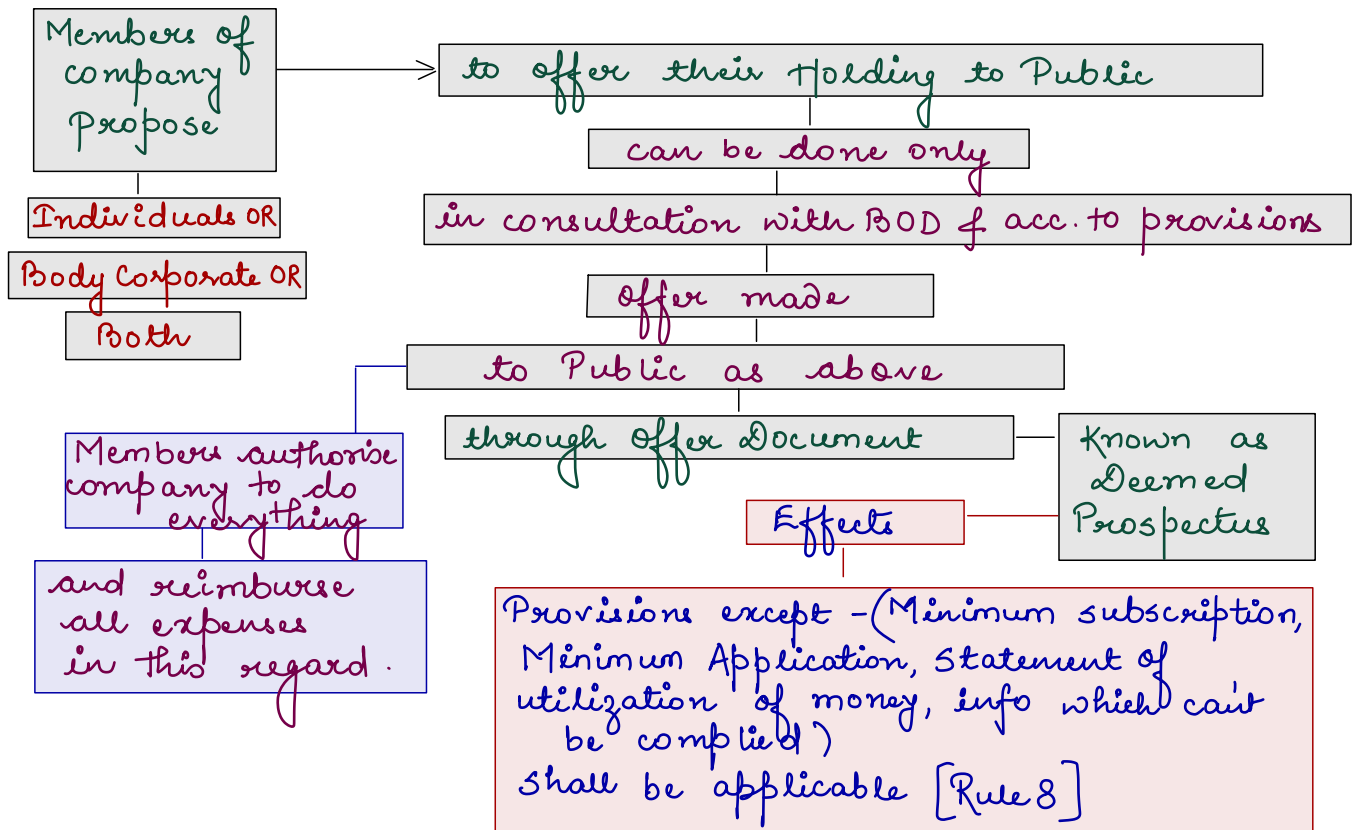 Members of
company
Propose
Individuals OR
Body Corporate OR
Both
to offer their Holding to Public
can be done only
in consultation with BOD & acc. to provisions
offer made
to Public as above
through Offer Document
Known as
Deemed
Prospectus
Members authorise
company to do
everything
and reimburse
all expenses
in this regard.
Effects
Provisions except - (Minimum subscription,
Minimum Application, Statement of
utilization of money, info which can't
be complied)
shall be applicable [Rule 8]